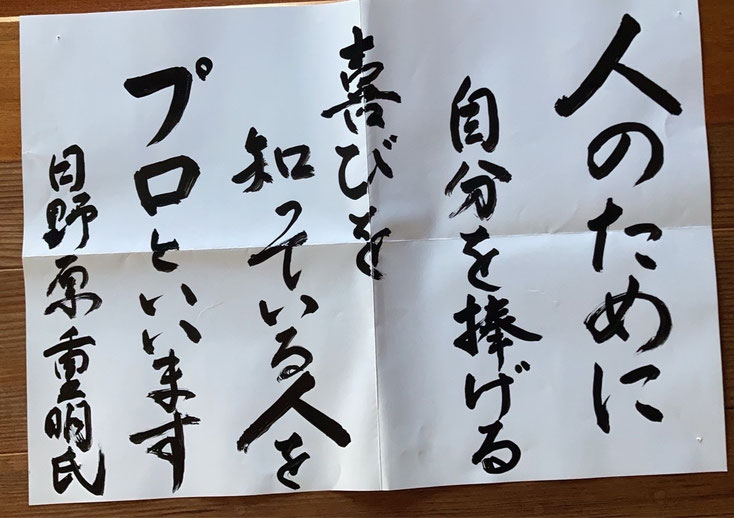 人のために
自分を捧げる
喜びを
知っている人を
プロといいます
日野原重明氏